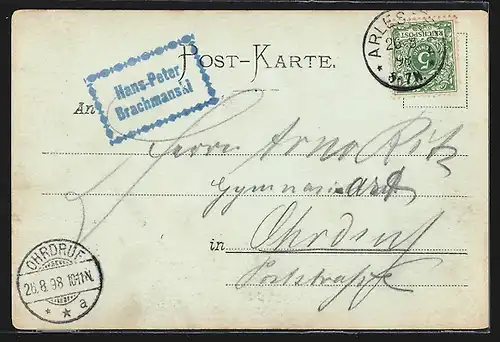 POST-KARTE.
ARLES
26 8
98
5-6 7N.
REICHSPOST
5
Hans-Peter
Brachmanski
An
Herrn Arno Ritz
Gymnasiast
in Ohrdruf
Poststraße
OHRDRUF
26.8.98 10-11N.
* * a